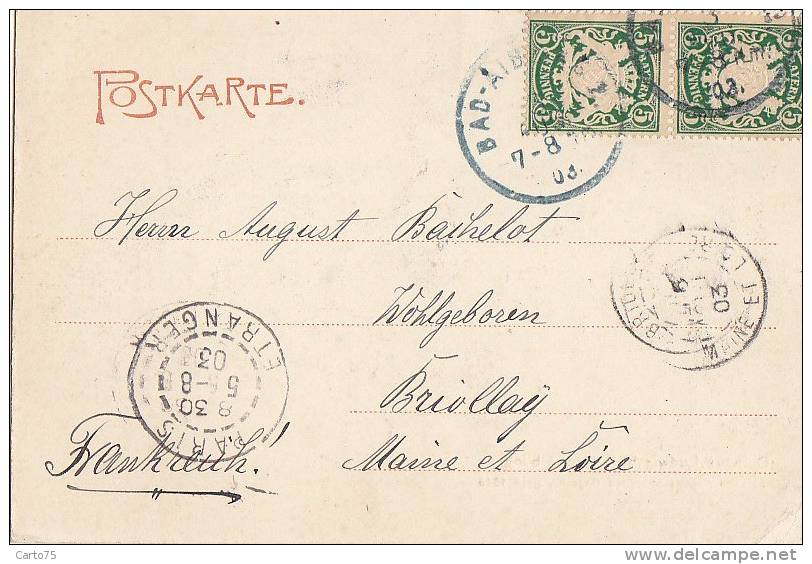 POSTKARTE.
BAD-AIB
7-8
03.
5 5 5 5
BAYERN
PFENNIG
03.
Herrn August Bachelot
Wohlgeboren
Briollay
Maine et Loire
Frankreich!
PARIS ETRANGER
8 30
5-8
03
MAINE ET LOIRE
03
Carto75
www.delcampe.net